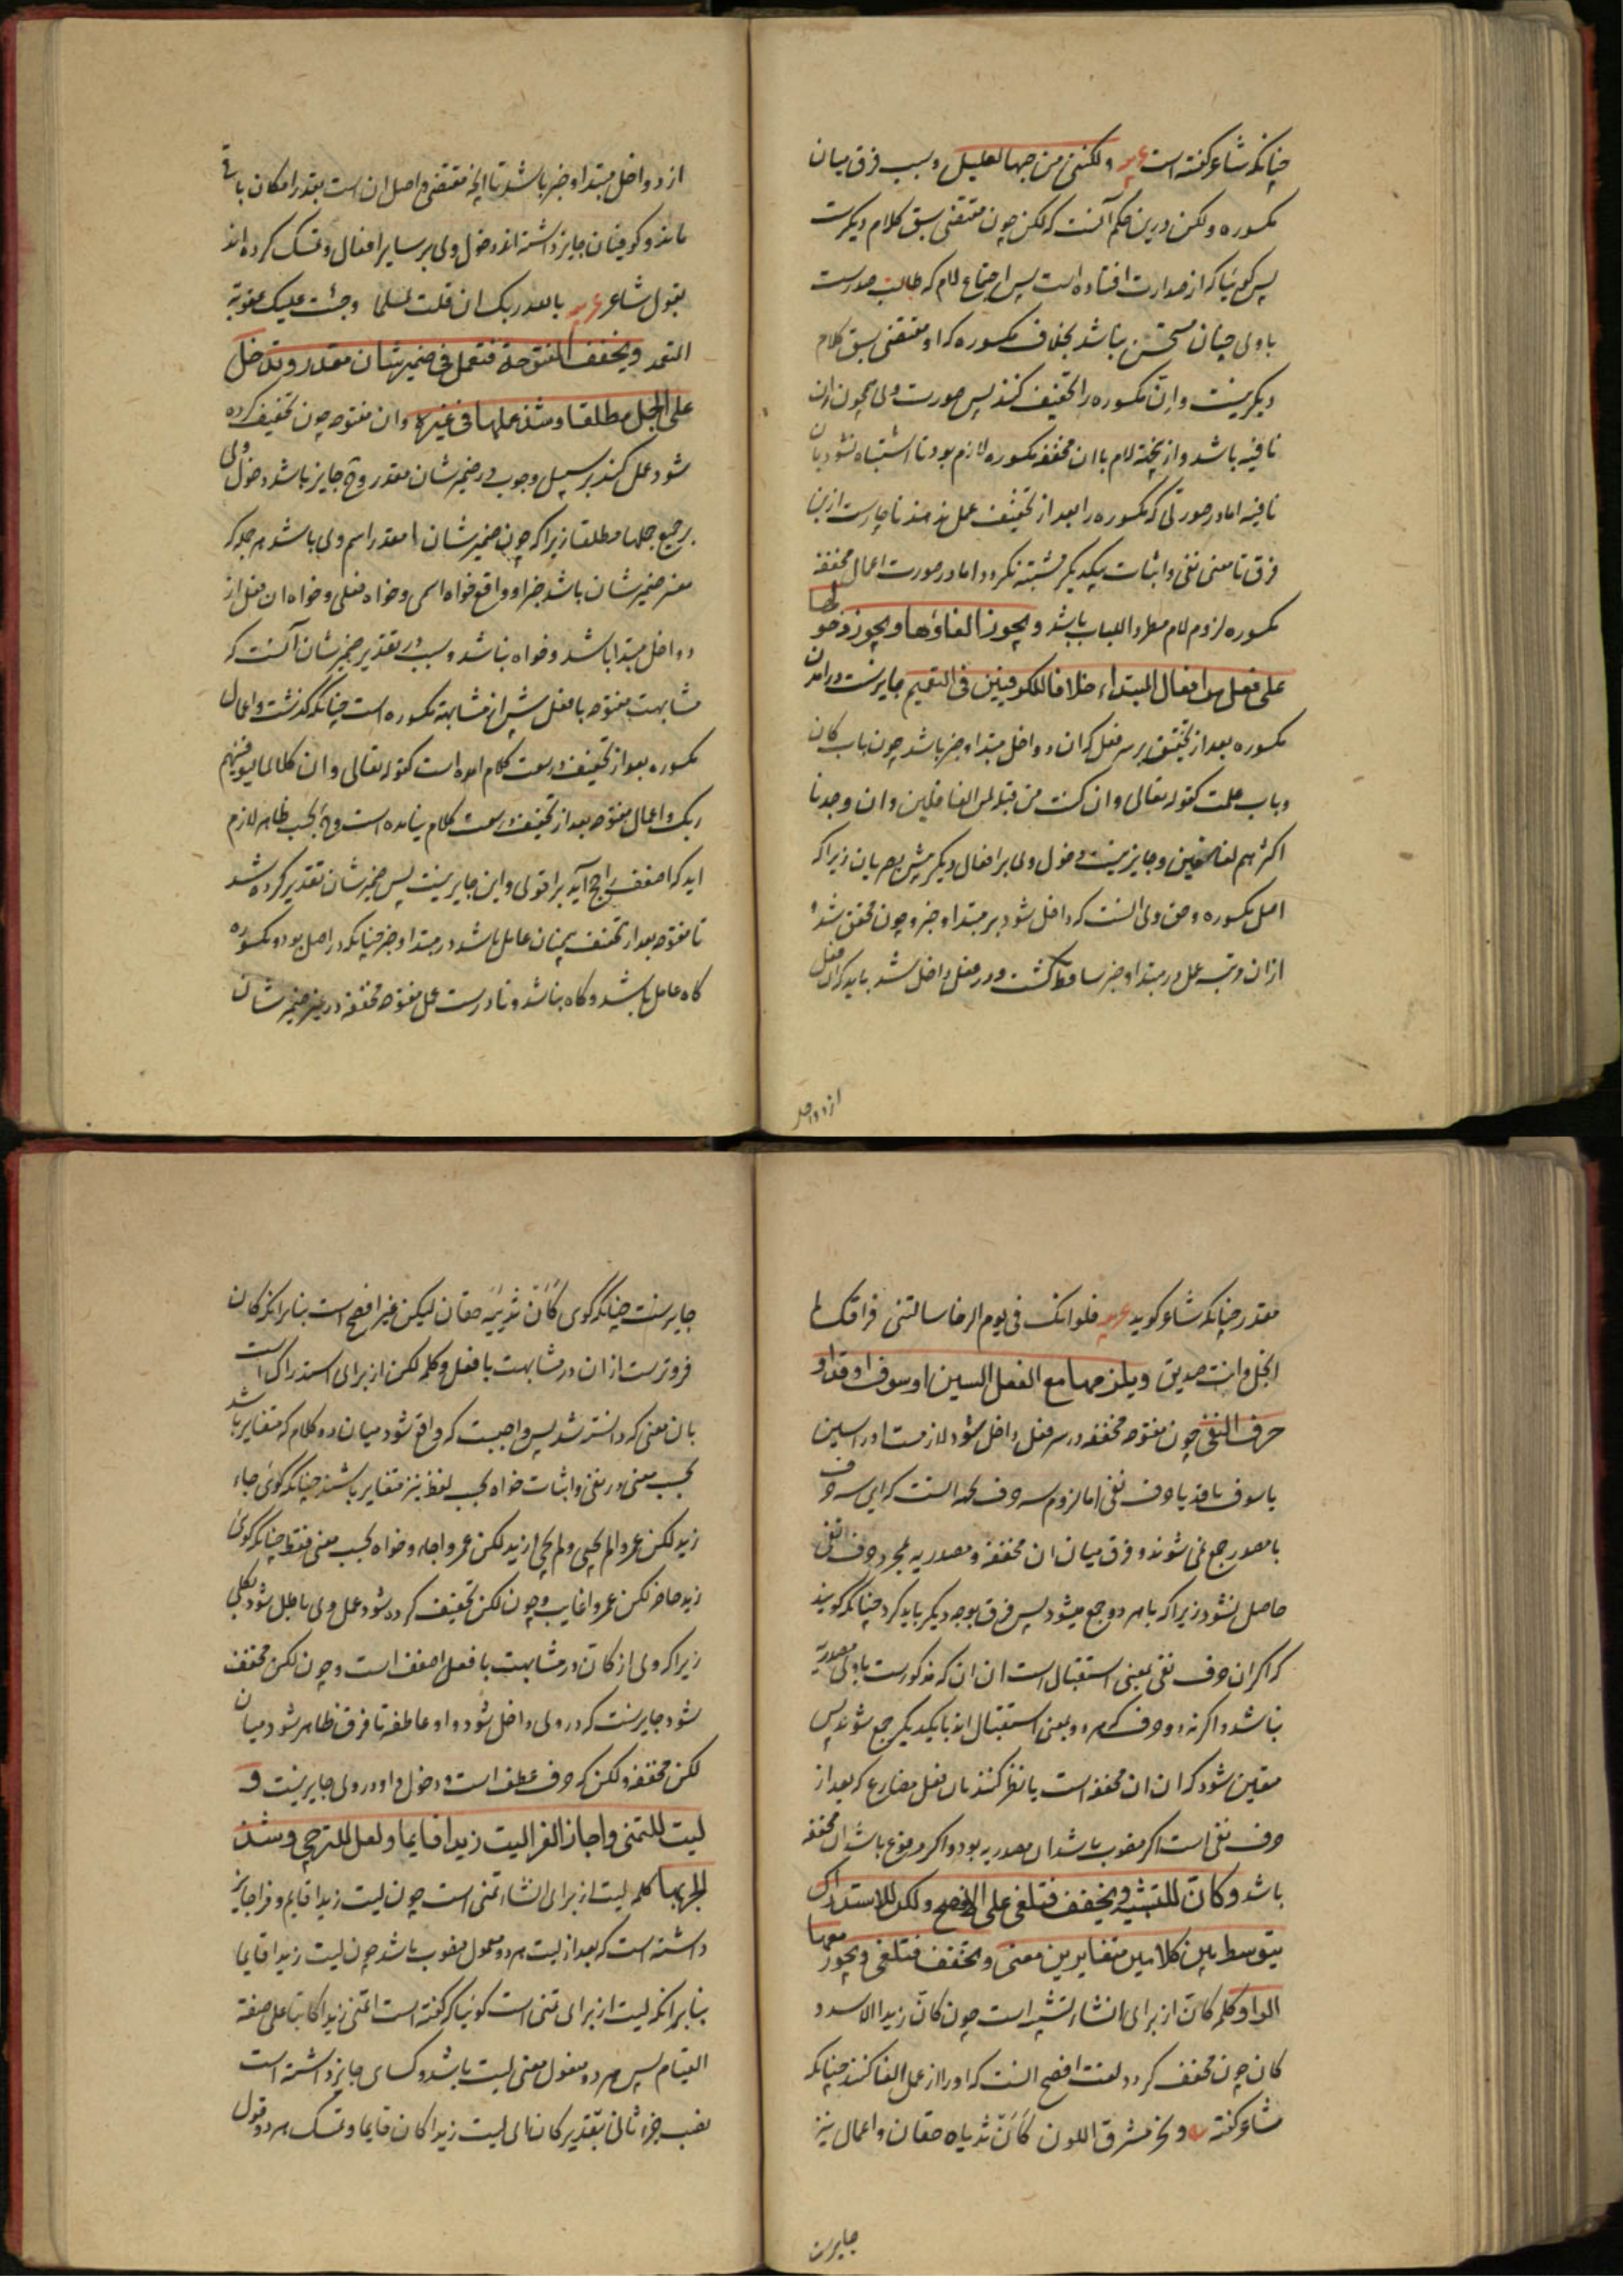 چنانکه شاعر گفته است ع ولکننی من حبها لعلیل وسبب فرق میان
مکسوره ولکن درین حکم آنست که لکن چون مقتضی سبق کلام دیکرست
پس کوئیا که از صدارت افتاده است پس اجتماع لام که طالب صدرست
با وی چنان مستحسن نباشد بخلاف مکسوره که او مقتضی سبق کلام
دیکر نیست واِنّ مکسوره را تخفیف کنند پس صورت وی همچون ان
نافیه باشد و ازینجهة لام با ان مخففه مکسوره لازم بود تا اشتباه نشود بان
نافیه اما در صورتی که مکسوره را بعد از تخفیف عمل ندهند ناچارست ازین
فرق تا معنی نفی و اثبات بیکدیکر مشتبه نکردد اما در صورت اعمال مخففه
مکسوره لزوم لام مطردا للباب باشد ویجوز الغاؤها ویجوز دخولها
علی فعل من افعال المبتداء خلافا للکوفیین فی التعمیم جایزست درامدن
مکسوره بعد از تخفیف بر سر فعل که ان دواخل مبتدا وخبر باشد چون باب کان
وباب علمت کقوله تعالی وان کنت من قبله لمن الغافلین وان وجدنا
اکثرهم لفاسقین وجایز نیست دخول وی بر افعال دیکر پیش بصریان زیرا که
اصل مکسوره وحق وی آنست که داخل شود بر مبتدا وخبر و چون مخفف شد و
ازان مرتبه عمل در مبتدا وخبر ساقط کشت و در فعل داخل شد باید که ان فعل
از دواخل
از دواخل مبتدا وخبر باشد تا انچه مقتضی واصل ان است بقدر امکان باقی
ماند و کوفیان جایز داشته اند دخول وی بر سایر افعال وتمسک کرده اند
بقول شاعر ع بالله ربک ان قلت لمسلما وجبت علیک عقوبة
المتعمد ویخفف المفتوحة فتعمل فی ضمیر شان مقدر وتدخل
علی الجمل مطلقا وشذ عملها فی غیره وان مفتوحه چون تخفیف کرده
شود عمل کند بر سبیل وجوب در ضمیر شان مقدر وح جایز باشد دخول وی
بر جمیع جملها مطلقا زیرا که چون ضمیر شان مقدر اسم وی باشد هر جمله که
مفسر ضمیر شان باشد خبر او واقع خواه اسمی وخواه فعلی وخواه ان فعل از
دواخل مبتدا باشد وخواه نباشد وسبب در تقدیر ضمیر شان آنست که
مشابهت مفتوحه با فعل بیش از مشابهة مکسوره است چنانکه کذشت واعمال
مکسوره بعد از تخفیف در سعت کلام امده است کقوله تعالی وان کلا لما لیوفینهم
ربک واعمال مفتوحه بعد از تخفیف در سعت کلام نیامده است وح بحسب ظاهر لازم
اید که اضعف راجح آید بر اقوی واین جایز نیست پس ضمیر شان تقدیر کرده شد
تا مفتوحه بعد از تخفیف همچنان عامل باشد در مبتدا وخبر چنانکه در اصل بود ومکسوره
کاه عامل باشد وکاه نباشد ونادرست عمل مفتوحه مخففه در غیر ضمیر شان
مقدر چنانکه شاعر کوید ع فلو انک فی یوم الرخا سالتنی فراقک لم
ابخل وانت صدیق ویلزمها مع الفعل السین او سوف او قد او
حرف النفی چون مفتوحه مخففه در سر فعل داخل شود لازمست او را سین
یا سوف یا قد یا حرف نفی اما لزوم سه حرف بجهة انست که این سه حرف
با مصدر جمع نمی شوند و فرق میان ان مخففه و مصدریه بمجرد حرف نفی
حاصل نشود زیرا که با هر دو جمع میشود پس فرق بوجه دیکر باید کرد چنانکه کویند
که اکر ان حرف نفی بمعنی استقبال است ان ان که مذکورست با وی مصدریة
نباشد و اکر نه دو حرف که هر دو بمعنی استقبال اند با یکدیکر جمع شوند پس
متعین شود که ان ان مخففه است یا نظر کنند بان فعل مضارع که بعد از
حرف نفی است اکر منصوب باشد ان مصدریه بود و اکر مرفوع باشد ان مخففه
باشد وکان للتشبیه ویخفف فتلغی علی الافصح ولکن للاستدراک
یتوسط بین کلامین متغایرین معنی ویخفف فتلغی ویجوز معها
الواو کلمه کانّ از برای انشاء تشبیه است چون کانّ زیدا الاسد و
کان چون مخفف کردد لغت افصح انست که او را از عمل الغا کنند چنانکه
شاعر کفته ع ونحر مشرق اللون کَاَنْ ثدیاه حقان واعمال نیز
جایزست
جایزست چنانکه کوی کَاَنْ ثدییه حقان لیکن غیر افصح است بنابر انکه کان
فروترست از ان در مشابهت با فعل وکلمه لکن از برای استدراک است
بان معنی که دانسته شد پس واجبست که واقع شود میان دو کلام که متغایر باشد
بحسب معنی در نفی واثبات خواه بحسب لفظ نیز متغایر باشند چنانکه کوئی جاء
زید لکن عمروا لم یجئ ولم یجئ زید لکن عمروا جاء وخواه بحسب معنی فقط چنانکه کوئی
زید حاضر لکن عمروا غایب وچون لکن تخفیف کرده شود عمل وی باطل شود بکلی
زیرا که وی از کانّ در مشابهت با فعل اضعف است وچون لکن مخفف
شود جایزست که در وی داخل شود واو عاطفه تا فرق ظاهر شود میان
لکن مخففه ولکن که حرف عطف است ودخول واو در وی جایز نیست و
لیت للتمنی واجاز الفرا لیت زیدا قایما ولعل للترجی وشذ
الجر بها کلمه لیت از برای انشاء تمنی است چون لیت زیدا قایم وفرا جایز
داشته است که بعد از لیت هر دو معمول منصوب باشد چون لیت زیدا قایما
بنابر انکه لیت از برای تمنی است کوئیا که کفته است اتمنی زیدا کاینا علی صفة
القیام پس هر دو مفعول معنی لیت باشد وکسای جایز داشته است
نصب جزء ثانی بتقدیر کان ای لیت زیدا کان قایما وتمسک هر دو قول